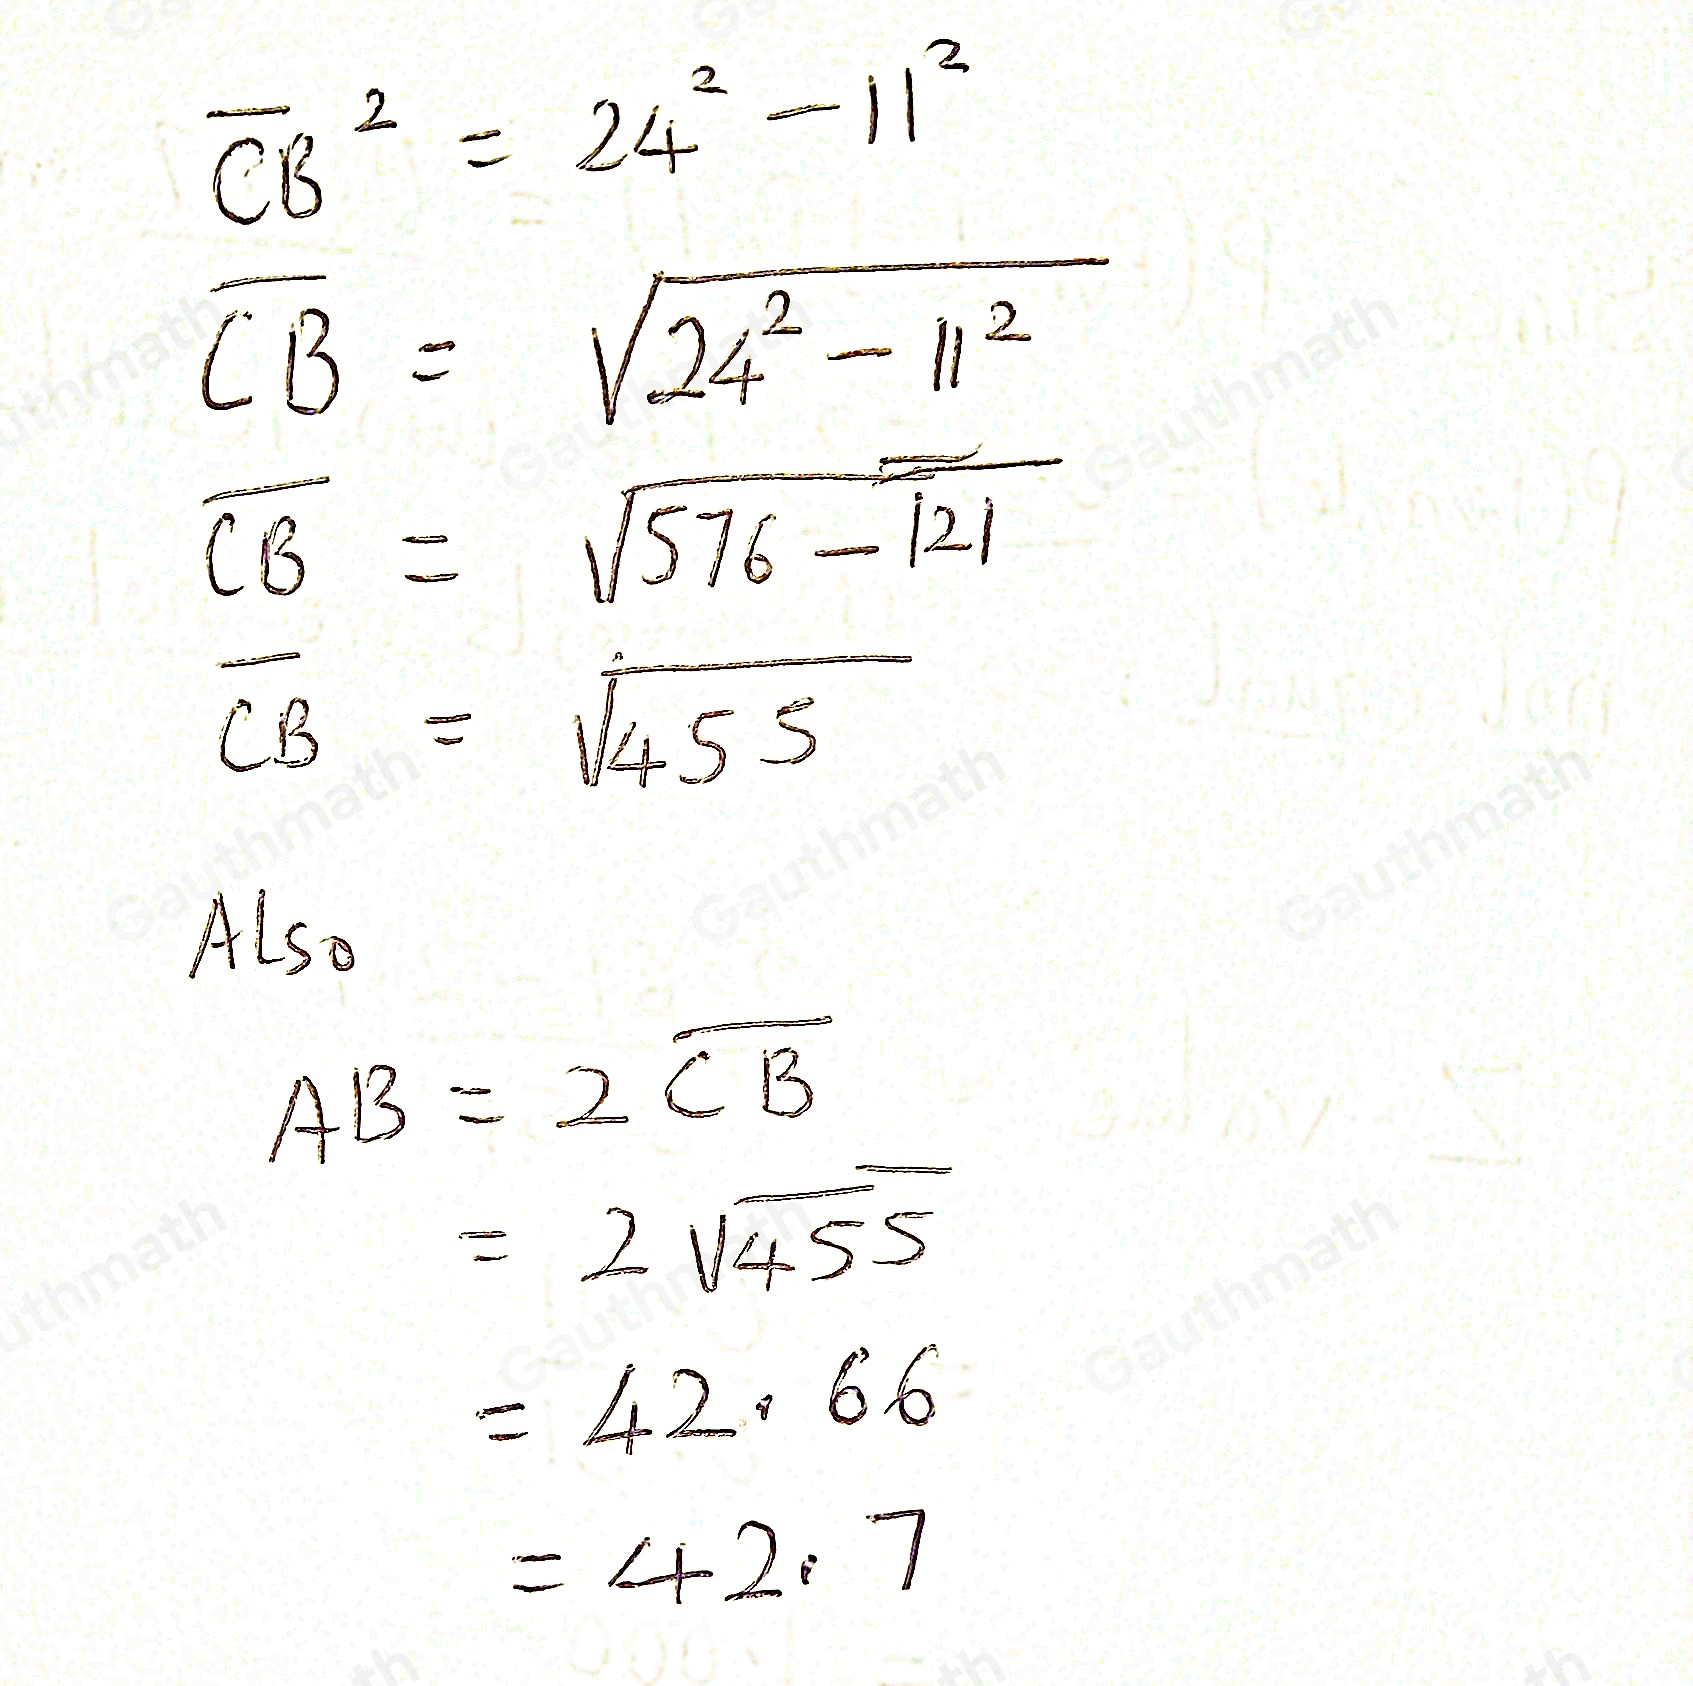 C̅B̅² = 24² - 11²
C̅B̅ = √(24² - 11²)
C̅B̅ = √(576 - 121)
C̅B̅ = √455
Also
AB = 2 C̅B̅
= 2√455
= 42.66
= 42.7